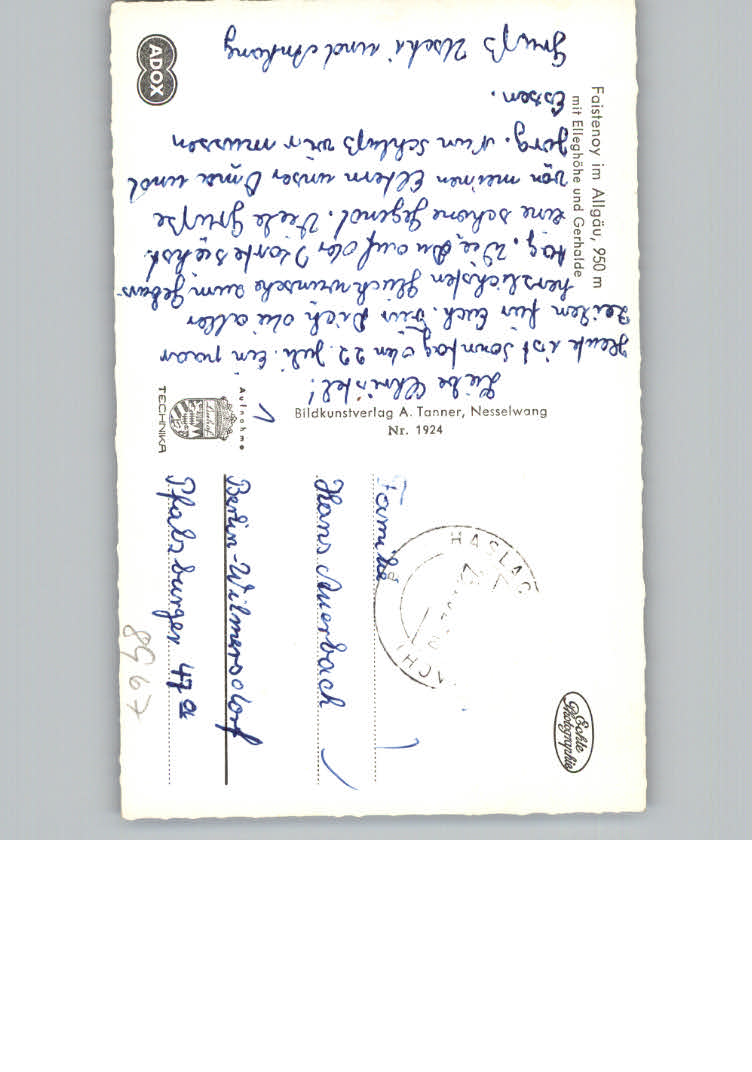 Faistenoy im Allgäu, 950 m
mit Elleghöhe und Gerhalde
Liebe Christel!
Heute ist Sonntag den 22. Juli. Ein paar
Zeilen für Euch. Für Dich die aller
herzlichsten Glückwünsche zum Geburts-
tag. Wie Du auf der Karte siehst
eine schöne Gegend. Viele Grüße
von meinen Eltern unser Oma und
Jörg. Nun Schluß wir müssen
Essen.
Gruß Uschi und Anhang
ADOX
Bildkunstverlag A. Tanner, Nesselwang
Nr. 1924
Aufnahme
Linhof
TECHNIKA
HASLACH
Familie
Hans Auerbach
Berlin-Wilmersdorf
Pfalzburger 47a
Echte
Photographie